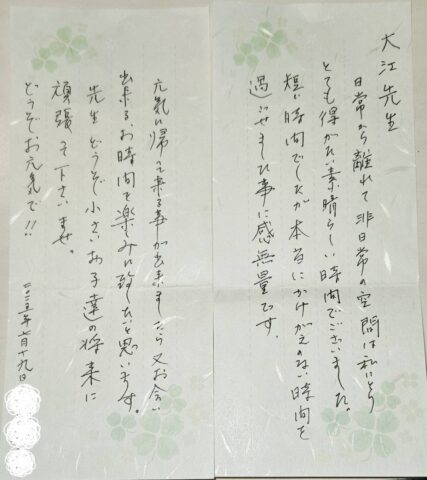 大江先生
日常から離れて非日常の空間は私にとり
とても得がたい素晴らしい時間でございました。
短い時間でしたが本当にかけがえのない時間を
過ごせました事に感無量です。
元気に帰って来る事が出来ましたら又お会い
出来るお時間を楽しみに致したいと思います。
先生どうぞ小さいお子達の将来に
頑張って下さいませ。
どうぞお元気で!!
二〇二五年七月十九日